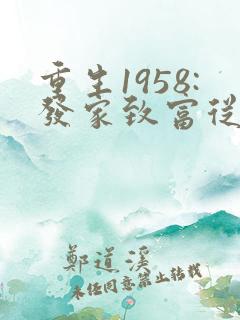 重生1958:
發家致富從
鄭道溪
未任同意禁止轉載